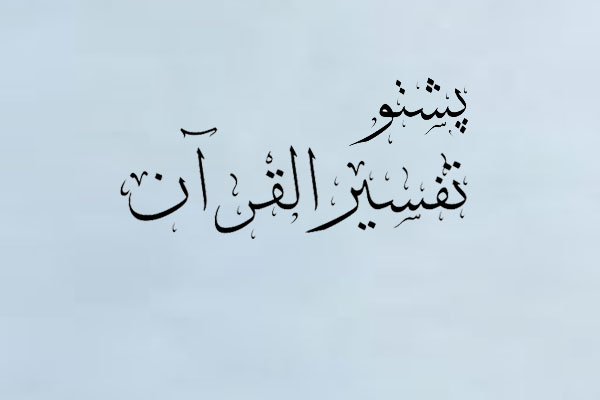 پشتو
تفسير القرآن